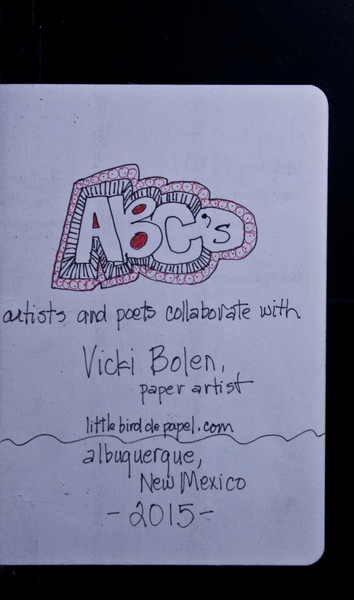 ABC's
artists and poets collaborate with
Vicki Bolen,
paper artist
littlebirddepapel.com
albuquerque,
New Mexico
-2015-